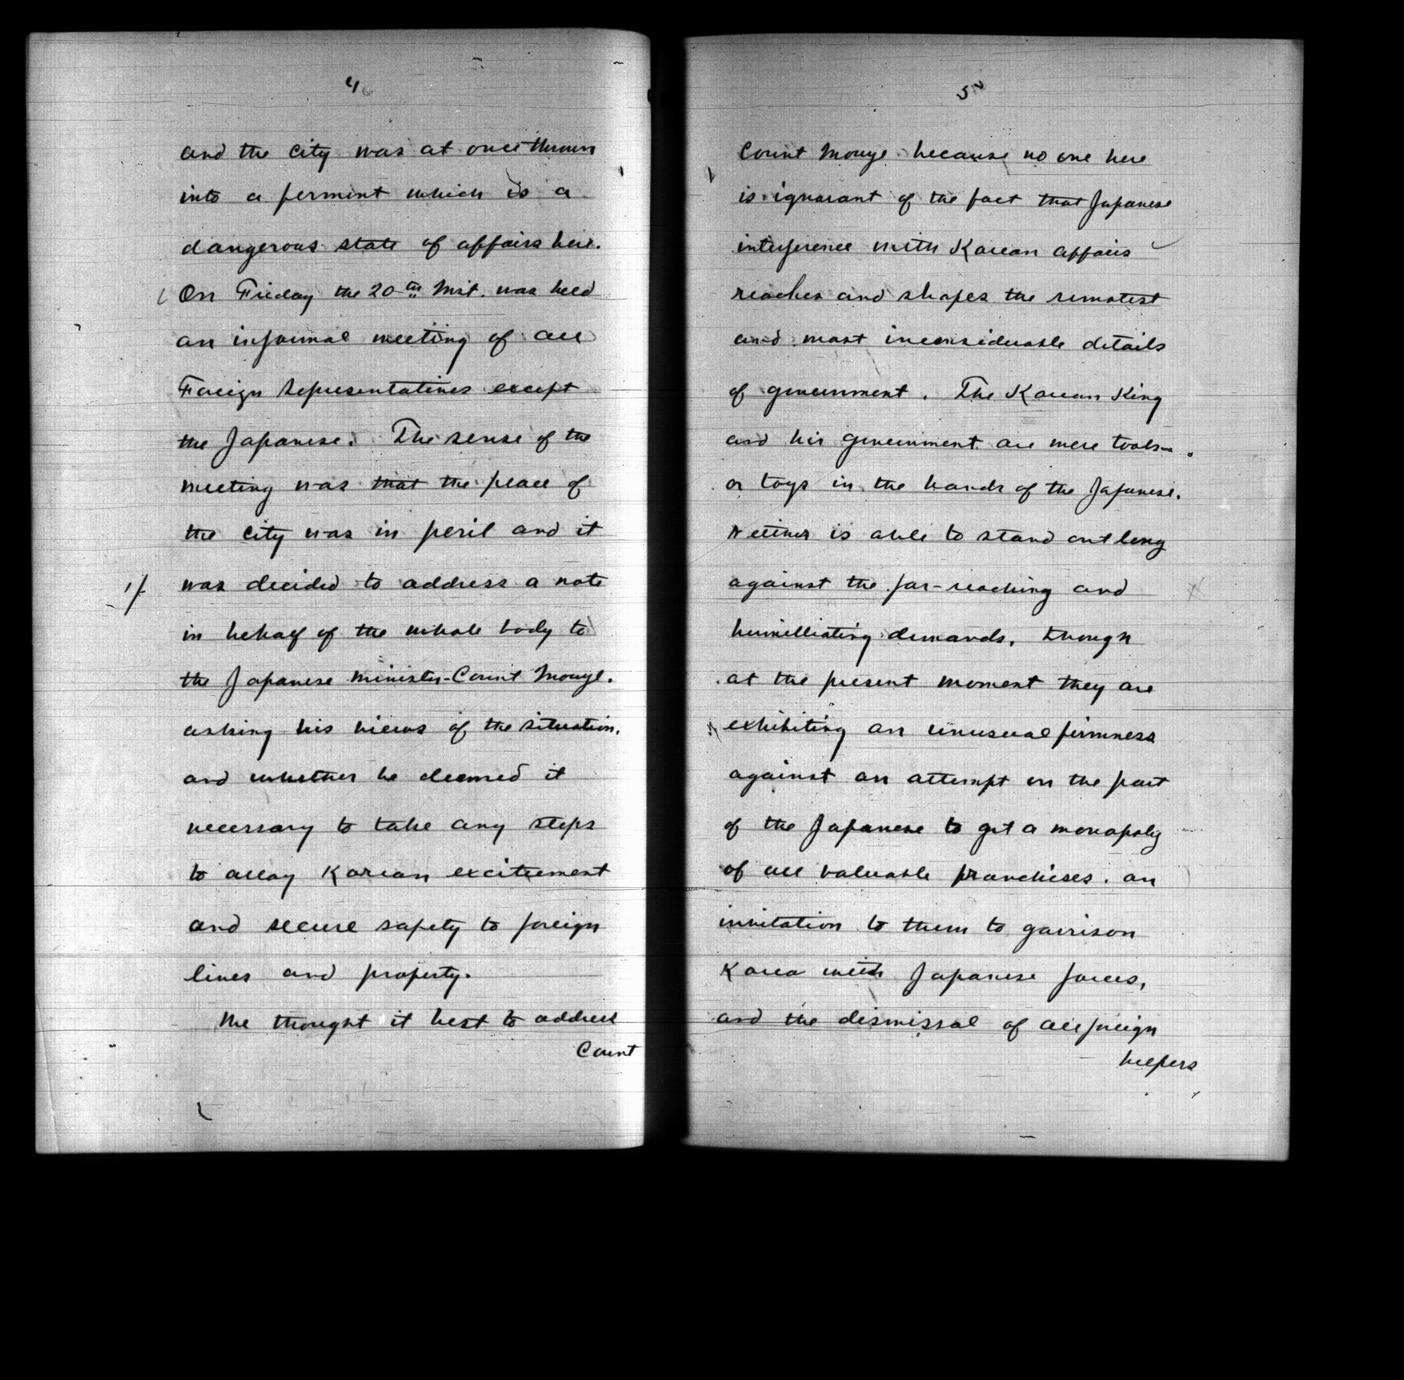 4
and the city was at once thrown
into a ferment which is a
dangerous state of affairs here.
On Friday the 20th Inst. was held
an informal meeting of all
Foreign Representatives except
the Japanese. The sense of the
meeting was that the peace of
the city was in peril and it
1/. was decided to address a note
in behalf of the whole body to
the Japanese Minister-Count Inouye.
asking his views of the situation.
and whether he deemed it
necessary to take any steps
to allay Korean excitement
and secure safety to foreign
lives and property.
We thought it best to address
Count
5
Count Inouye because no one here
is ignorant of the fact that Japanese
interference with Korean affairs
reaches and shapes the remotest
and most inconsiderable details
of government. The Korean King
and his government are mere tools
or toys in the hands of the Japanese.
Neither is able to stand out long
against the far-reaching and
humilliating demands, though
at the present moment they are
exhibiting an unusual firmness
against an attempt on the part
of the Japanese to get a monopoly
of all valuable franchises. an
invitation to them to garrison
Korea with Japanese forces,
and the dismissal of all foreign
helpers